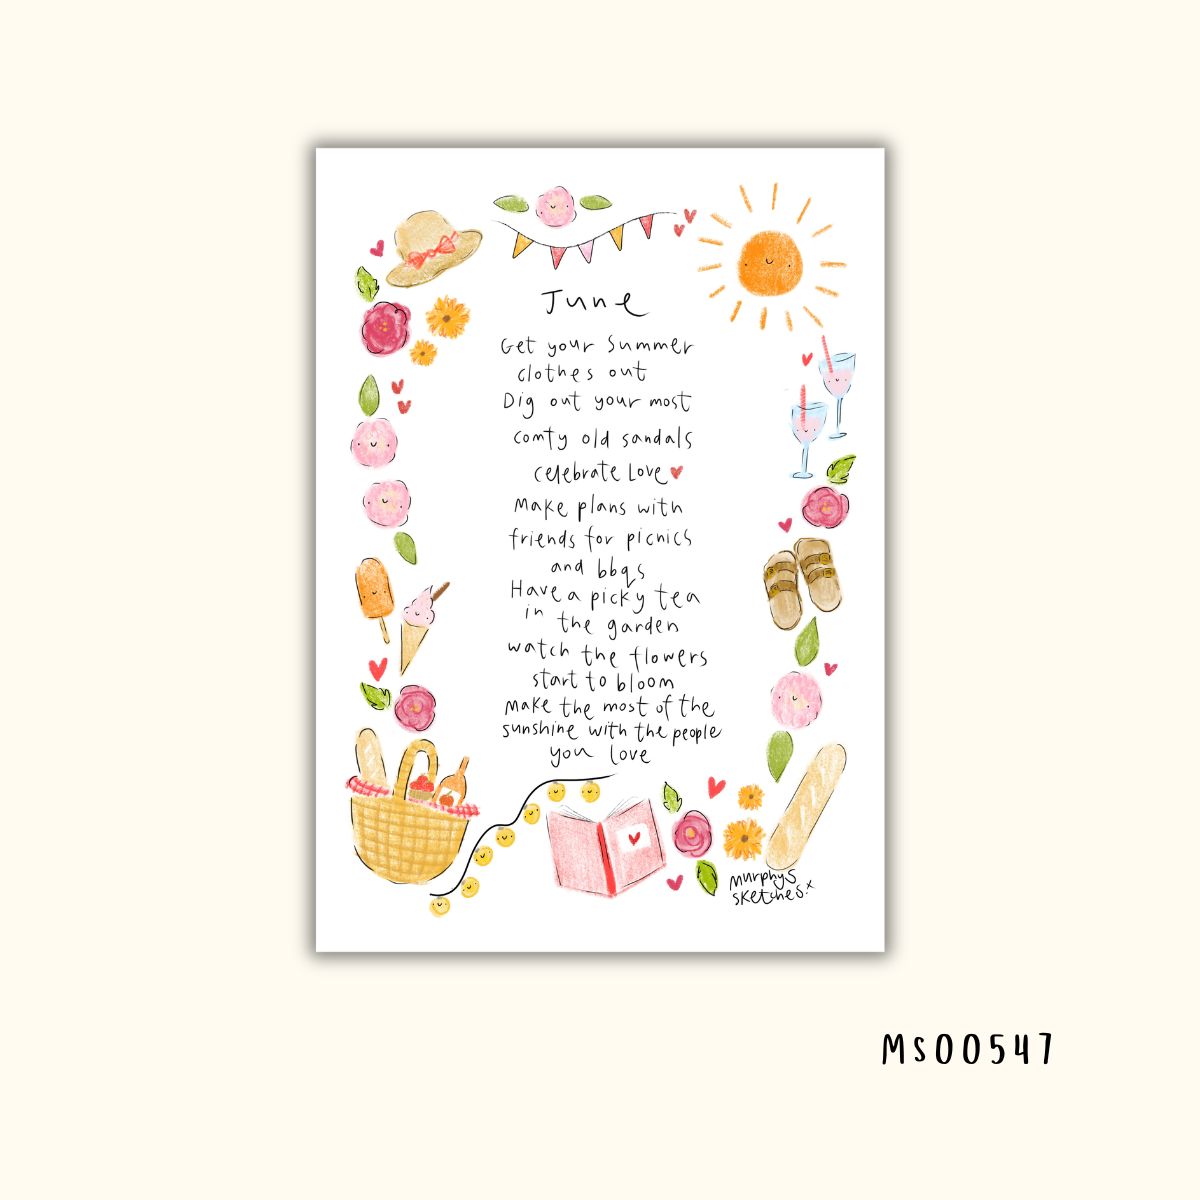 June
Get your Summer
clothes out
Dig out your most
comfy old sandals
celebrate Love
Make plans with
friends for picnics
and bbqs
Have a picky tea
in the garden
watch the flowers
start to bloom
make the most of the
sunshine with the people
you love
murphys
sketches.x
MS00547